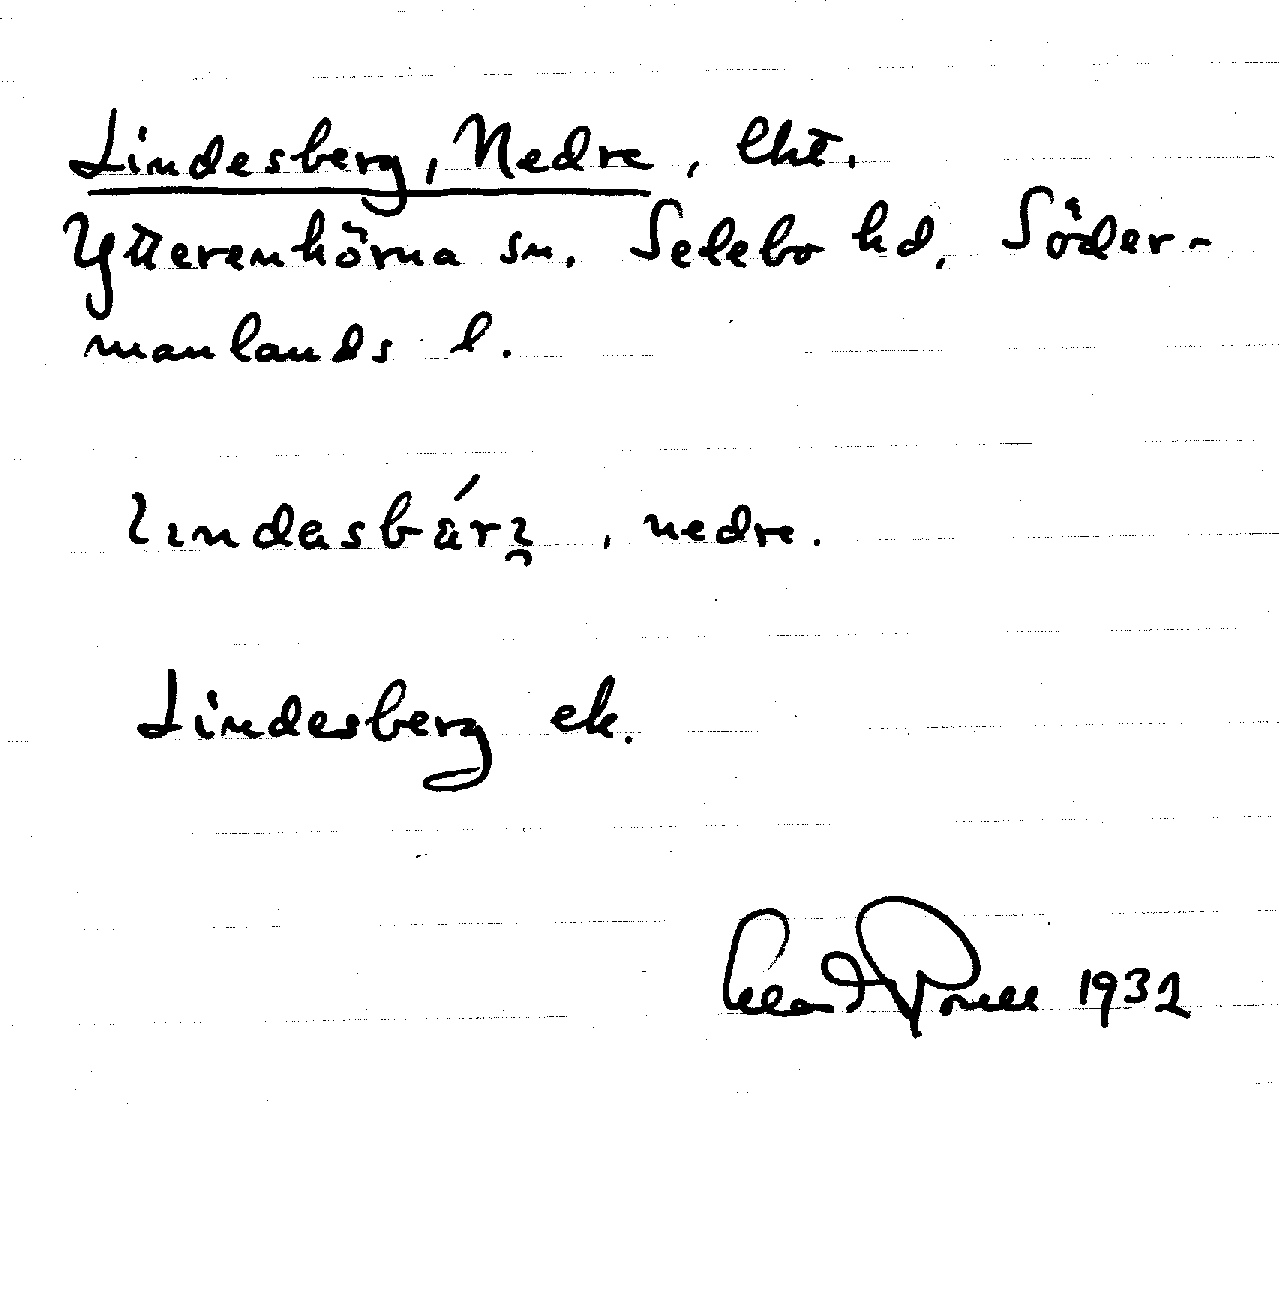 Lindesberg, Nedre, lht.
Ytterenhörna sn. Selebo hd, Söder-
manlands l.
lındasbárȥ, nedre.
Lindesberg ek.
1932